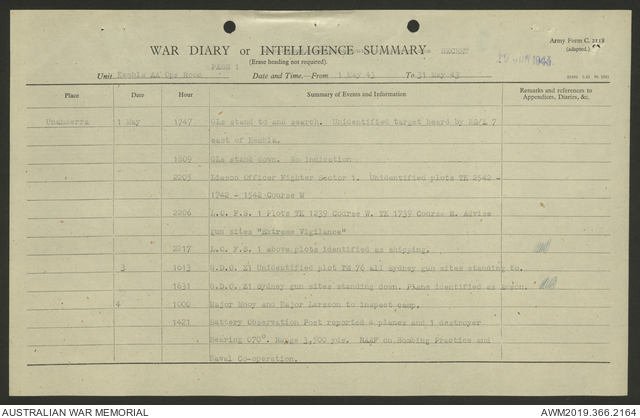 Army Form C. 2118
(adapted.)
WAR DIARY or INTELLIGENCE SUMMARY SECRET
(Erase heading not required).
PAGE 1
Unit Kembla AA Ops Room Date and Time.—From 1 May 43 To 31 May 43
Place Date Hour Summary of Events and Information Remarks and references to Appendices, Diaries, &c.
Unanderra 1 May 1747 GLs stand to and search. Unidentified target heard by 7
east of Kembla.
1809 GLs stand down. No indication
2205 Liason Officer Fighter Sector 1. Unidentified plots TK 2542 -
1742 - 1542 Course W
2206 L.O. F.S. 1 Plots TK 1239 Course W. TK 1739 Course N. Advise
gun sites "Extreme Vigilance"
2217 L.O. F.S. 1 above plots identified as shipping.
3 1613 G.D.O. Z1 Unidentified plot TH 76 all Sydney gun sites standing to.
1631 G.D.O. Z1 Sydney gun sites standing down. Plane identified as
4 1000 Major and Major Larsson to inspect camp.
1421 Battery Observation Post reported 4 planes and 1 destroyer
Bearing 070°. Range 3,500 yds. RAAF on Bombing Practice and
Naval Co-operation.
AUSTRALIAN WAR MEMORIAL
AWM2019.366.2164